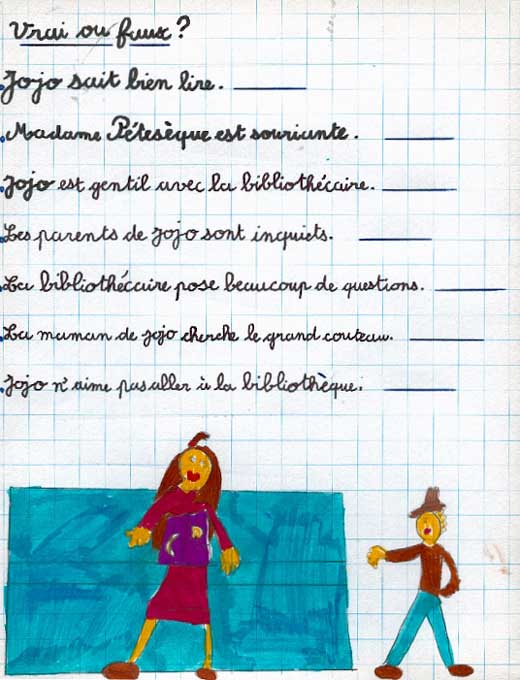 Vrai ou faux ?
Jojo sait bien lire.
Madame Pètesèque est souriante.
Jojo est gentil avec la bibliothécaire.
Les parents de Jojo sont inquiets.
La bibliothécaire pose beaucoup de questions.
La maman de Jojo cherche le grand couteau.
Jojo n'aime pas aller à la bibliothèque.